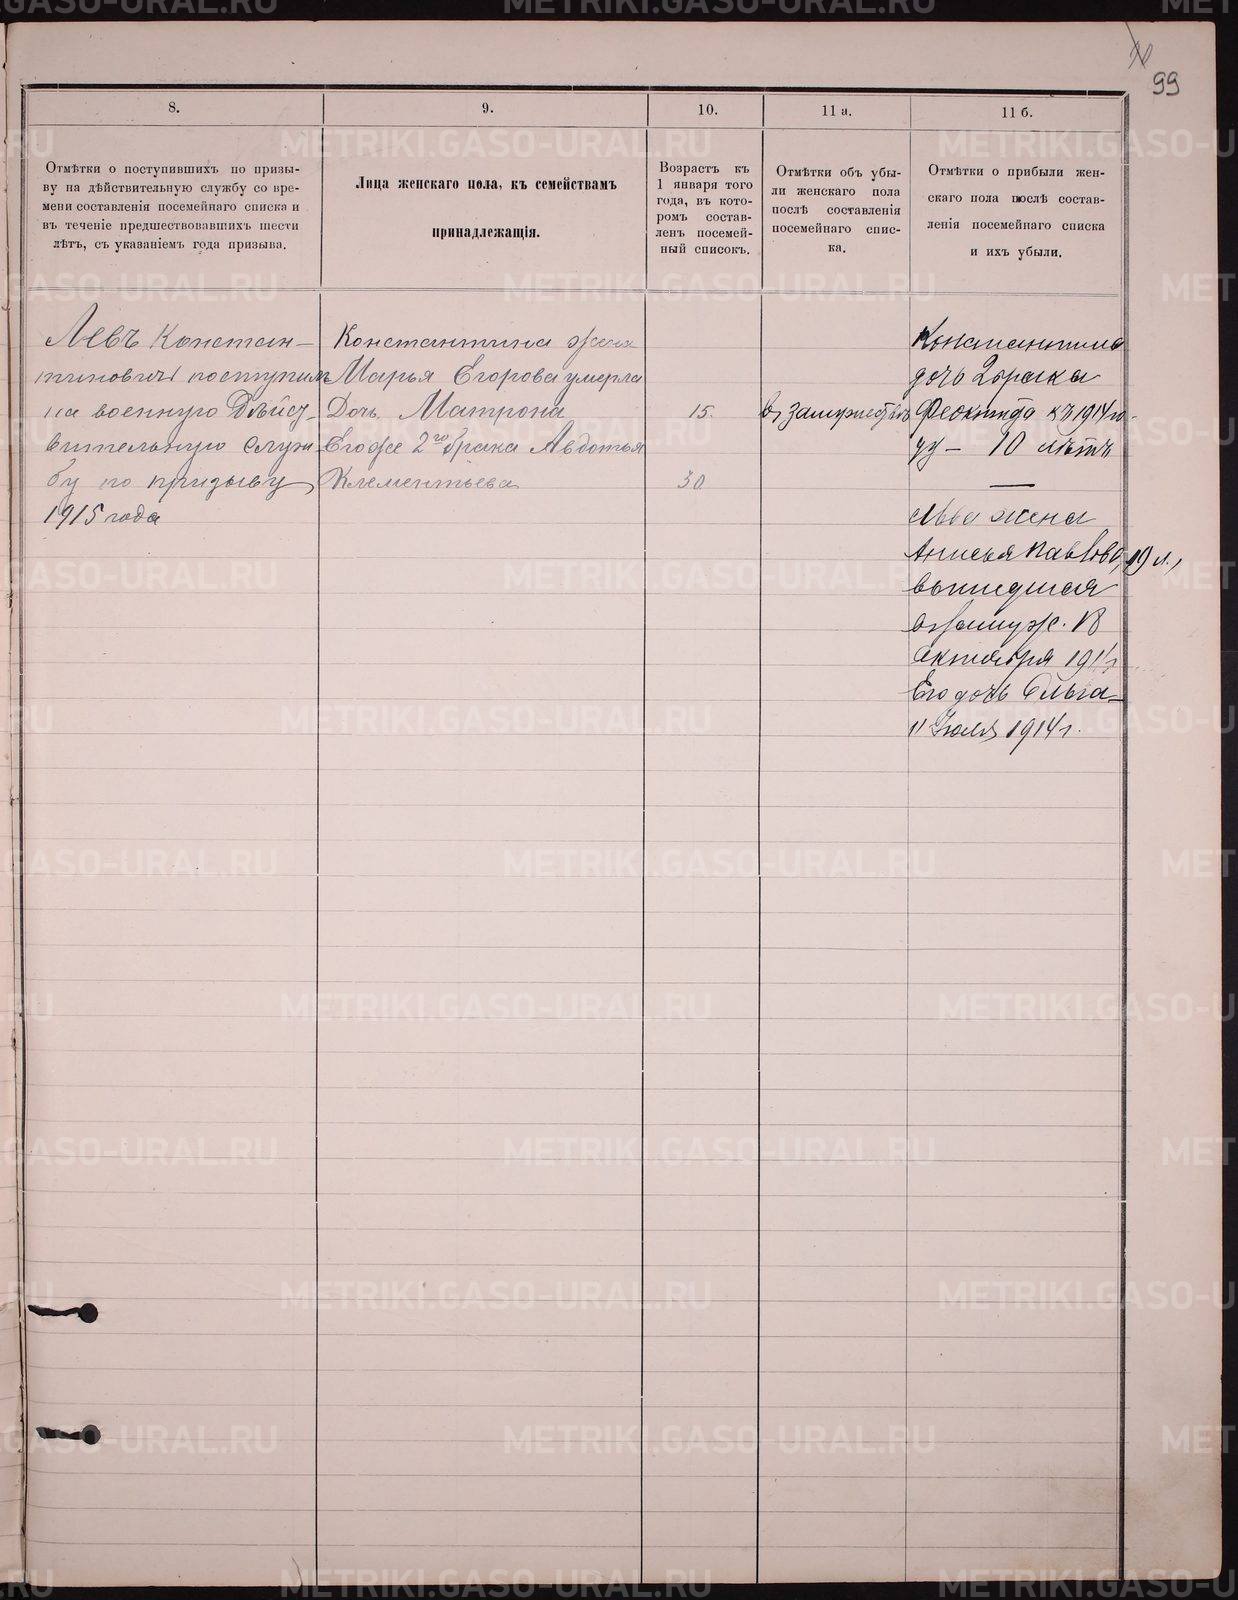 99
8.
9.
10.
11 а.
11 б.
Отмѣтки о поступившихъ по призы-
ву на дѣйствительную службу со вре-
мени составленія посемейнаго списка и
въ теченіе предшествовавшихъ шести
лѣтъ, съ указаніемъ года призыва.
Лица женскаго пола, къ семействамъ
принадлежащія.
Возрастъ къ
1 января того
года, въ кото-
ромъ состав-
ленъ посемей-
ный списокъ.
Отмѣтки объ убы-
ли женскаго пола
послѣ составленія
посемейнаго спис-
ка.
Отмѣтки о прибыли жен-
скаго пола послѣ состав-
ленія посемейнаго списка
и ихъ убыли.
Левъ Констан-
тиновичъ поступилъ
на военную Дѣйст-
вительную служ-
бу по призыву
1915 года
Константина жена
Марья Егорова умерла
Дочь Матрона
Его же 2го брака Авдотья
Клементьева
15.
30
въ замужествѣ
Константина
дочь 2 брака
Феоктиста къ 1914 го-
ду — 10 лѣтъ
Льва жена
Анисья Павлова, 19 л.,
вышедшая
въ замуж. 18
октября 1911 г.
Его дочь Ольга —
11 Іюля 1914 г.
METRIKI.GASO-URAL.RU